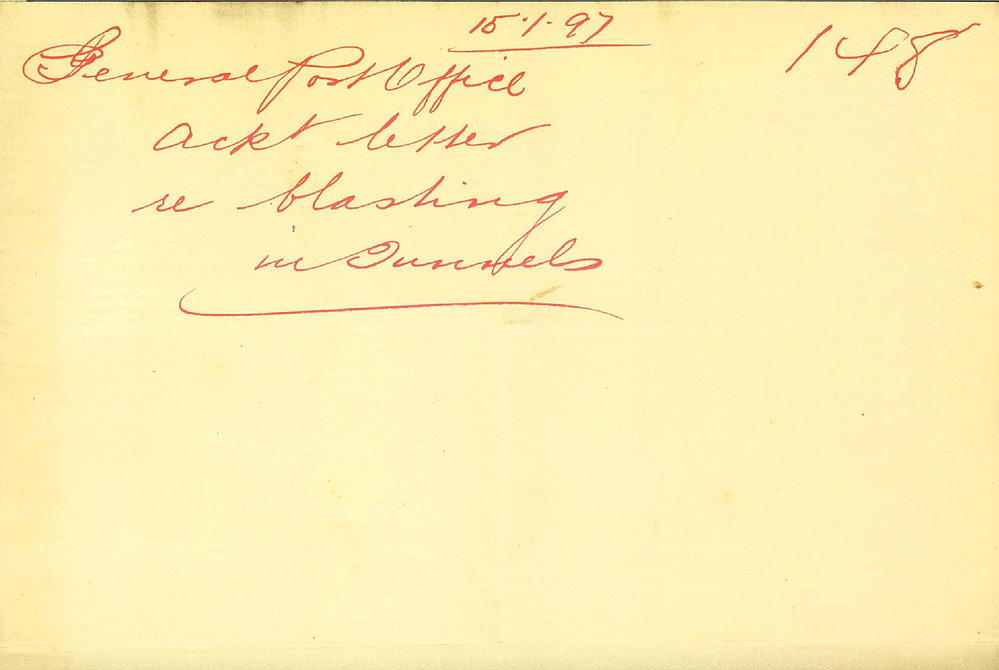 15.1.97
148
General Post Office
Ackt letter
re blasting
in Tunnels